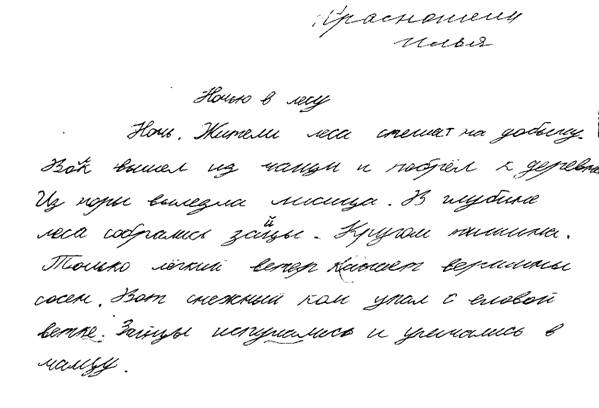 Красношеин
Илья
Ночью в лесу
Ночь. Жители леса спешат на добычу.
Вой вышел из чащи и побрёл к деревне
Из норы вылезла лисица. В глубине
леса собрались зайцы. Кругом тишина.
Только лёгкий ветер качает вершины
сосен. Вот снежный ком упал с еловой
ветке. Зайцы испугались и умчались в
чащу.